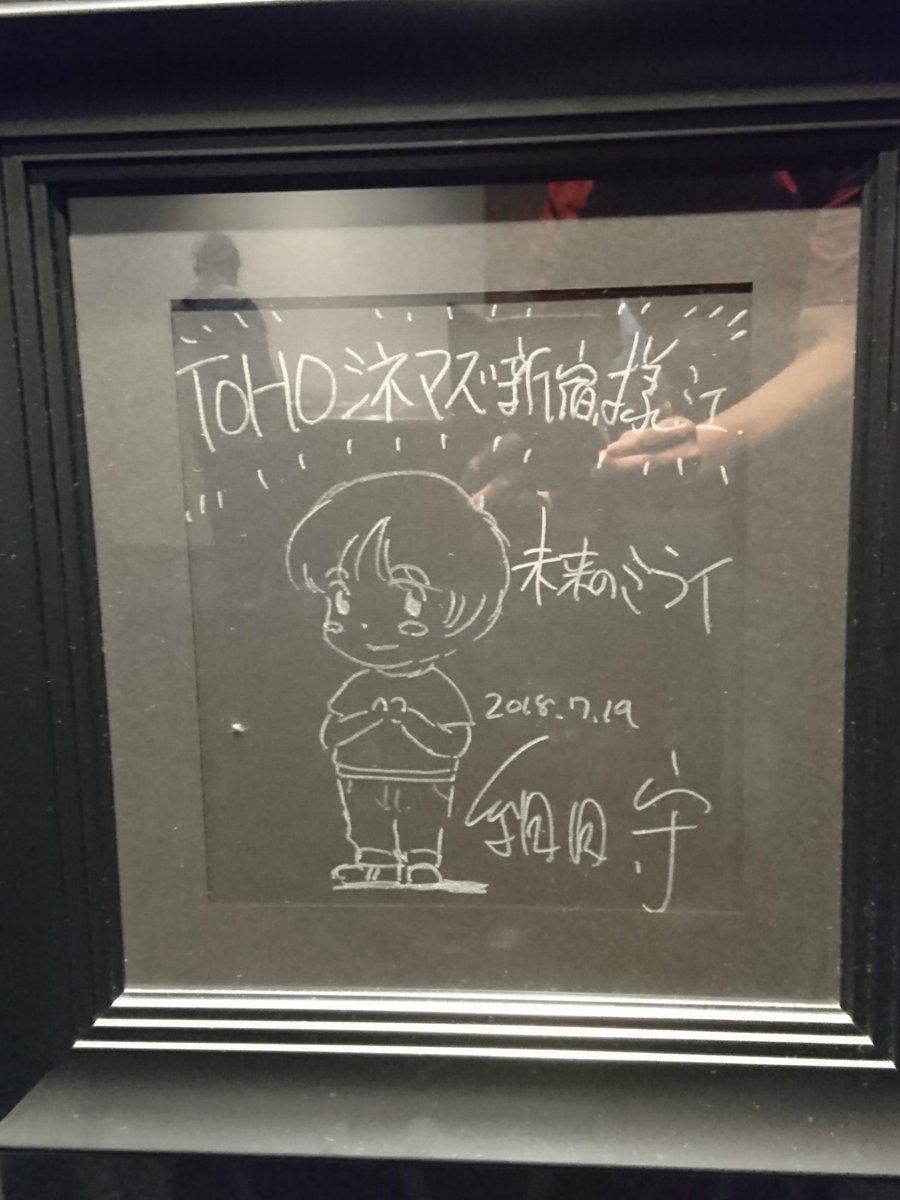 TOHOシネマズ新宿様江
未来のミライ
2018.7.19
細田 守